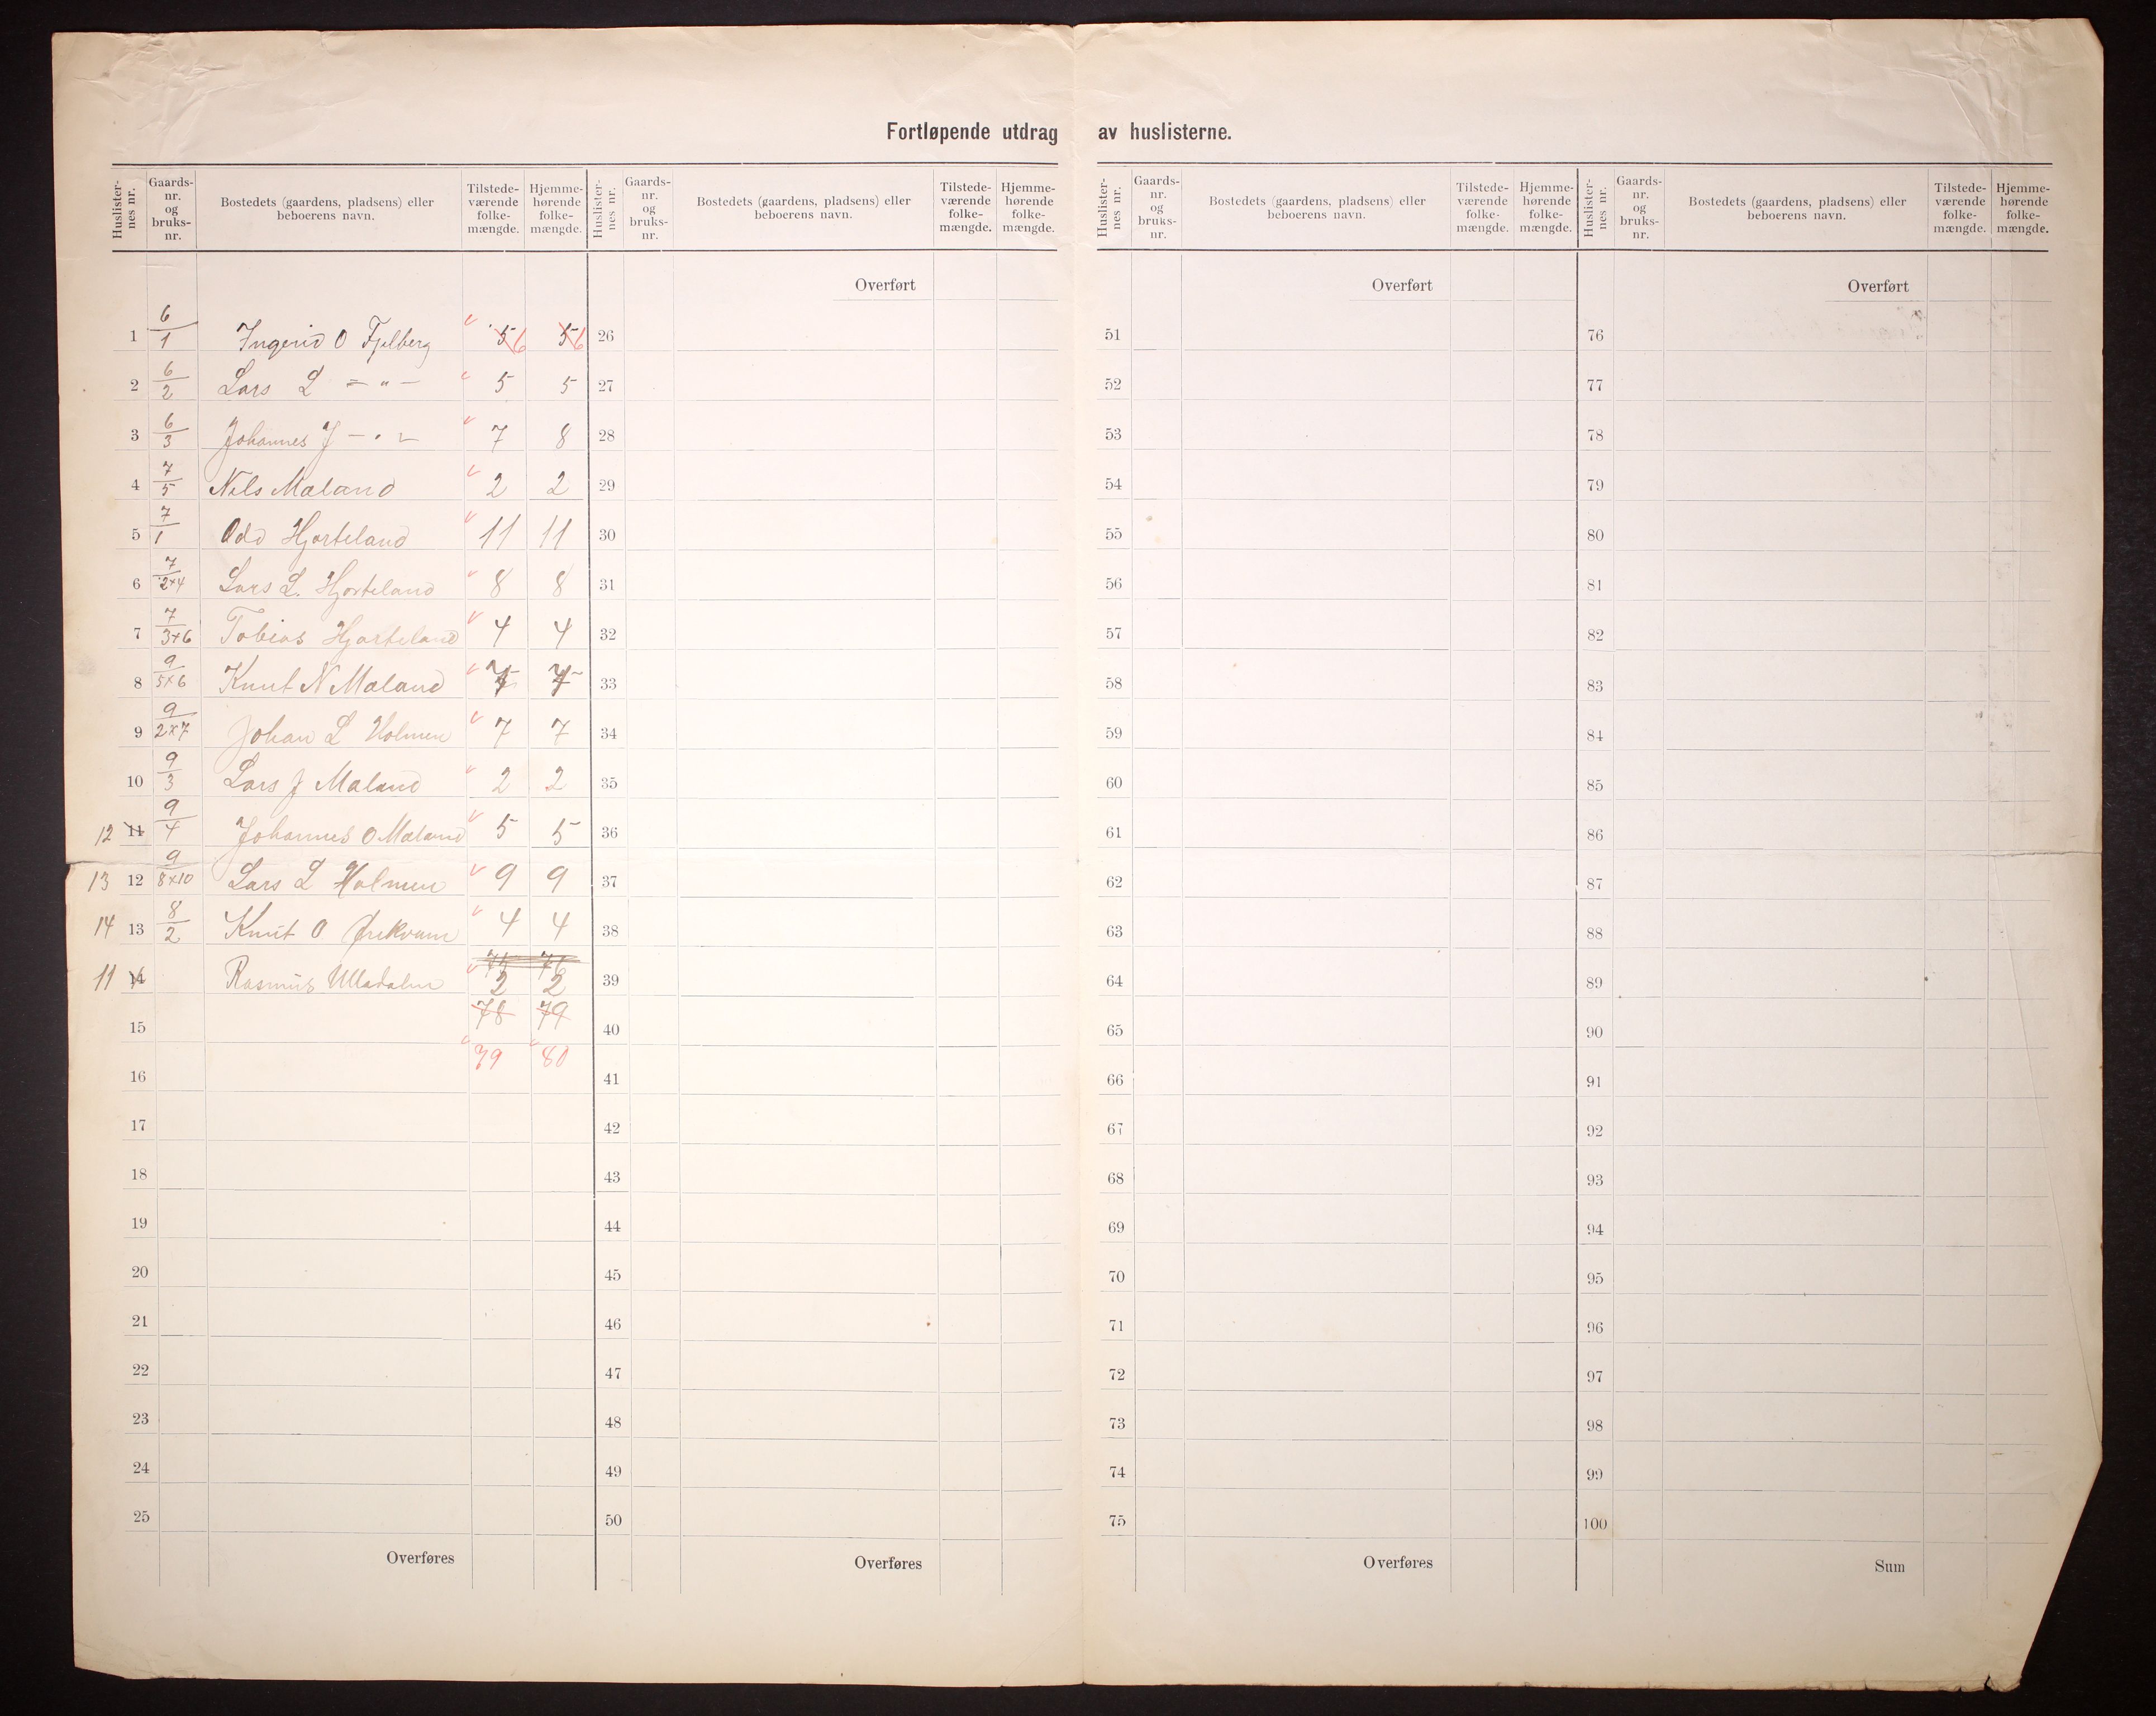 Fortløpende utdrag av huslisterne.
Huslister-nes nr. Gaards-nr. og bruks-nr. Bostedets (gaardens, pladsens) eller beboerens navn. Tilstede-værende folke-mængde. Hjemme-hørende folke-mængde.
Huslister-nes nr. Gaards-nr. og bruks-nr. Bostedets (gaardens, pladsens) eller beboerens navn. Tilstede-værende folke-mængde. Hjemme-hørende folke-mængde.
Huslister-nes nr. Gaards-nr. og bruks-nr. Bostedets (gaardens, pladsens) eller beboerens navn. Tilstede-værende folke-mængde. Hjemme-hørende folke-mængde.
Huslister-nes nr. Gaards-nr. og bruks-nr. Bostedets (gaardens, pladsens) eller beboerens navn. Tilstede-værende folke-mængde. Hjemme-hørende folke-mængde.
1 6/1 Ingerid O Fjelberg 5 6 5 6
2 6/2 Lars L = " - 5 5
3 6/3 Johannes J - " - 7 8
4 7/5 Nils Maland 2 2
5 7/1 Odd Hjorteland 11 11
6 7/2x4 Lars L. Hjorteland 8 8
7 7/3+6 Tobias Hjorteland 4 4
8 9/5x6 Knut N Maland 7 7
9 9/2x7 Johan L Holmen 7 7
10 9/3 Lars J Maland 2 2
12 11 9/4 Johannes O Maland 5 5
13 12 9/8x10 Lars L Holmen 9 9
14 13 8/2 Knut O Ørekvam 4 4
76
11 14 Rasmus Ulladalen 2 2
15 78 79
16 79 80
17
18
19
20
21
22
23
24
25
Overføres
Overført
26
27
28
29
30
31
32
33
34
35
36
37
38
39
40
41
42
43
44
45
46
47
48
49
50
Overføres
Overført
51
52
53
54
55
56
57
58
59
60
61
62
63
64
65
66
67
68
69
70
71
72
73
74
75
Overføres
Overført
76
77
78
79
80
81
82
83
84
85
86
87
88
89
90
91
92
93
94
95
96
97
98
99
100
Sum